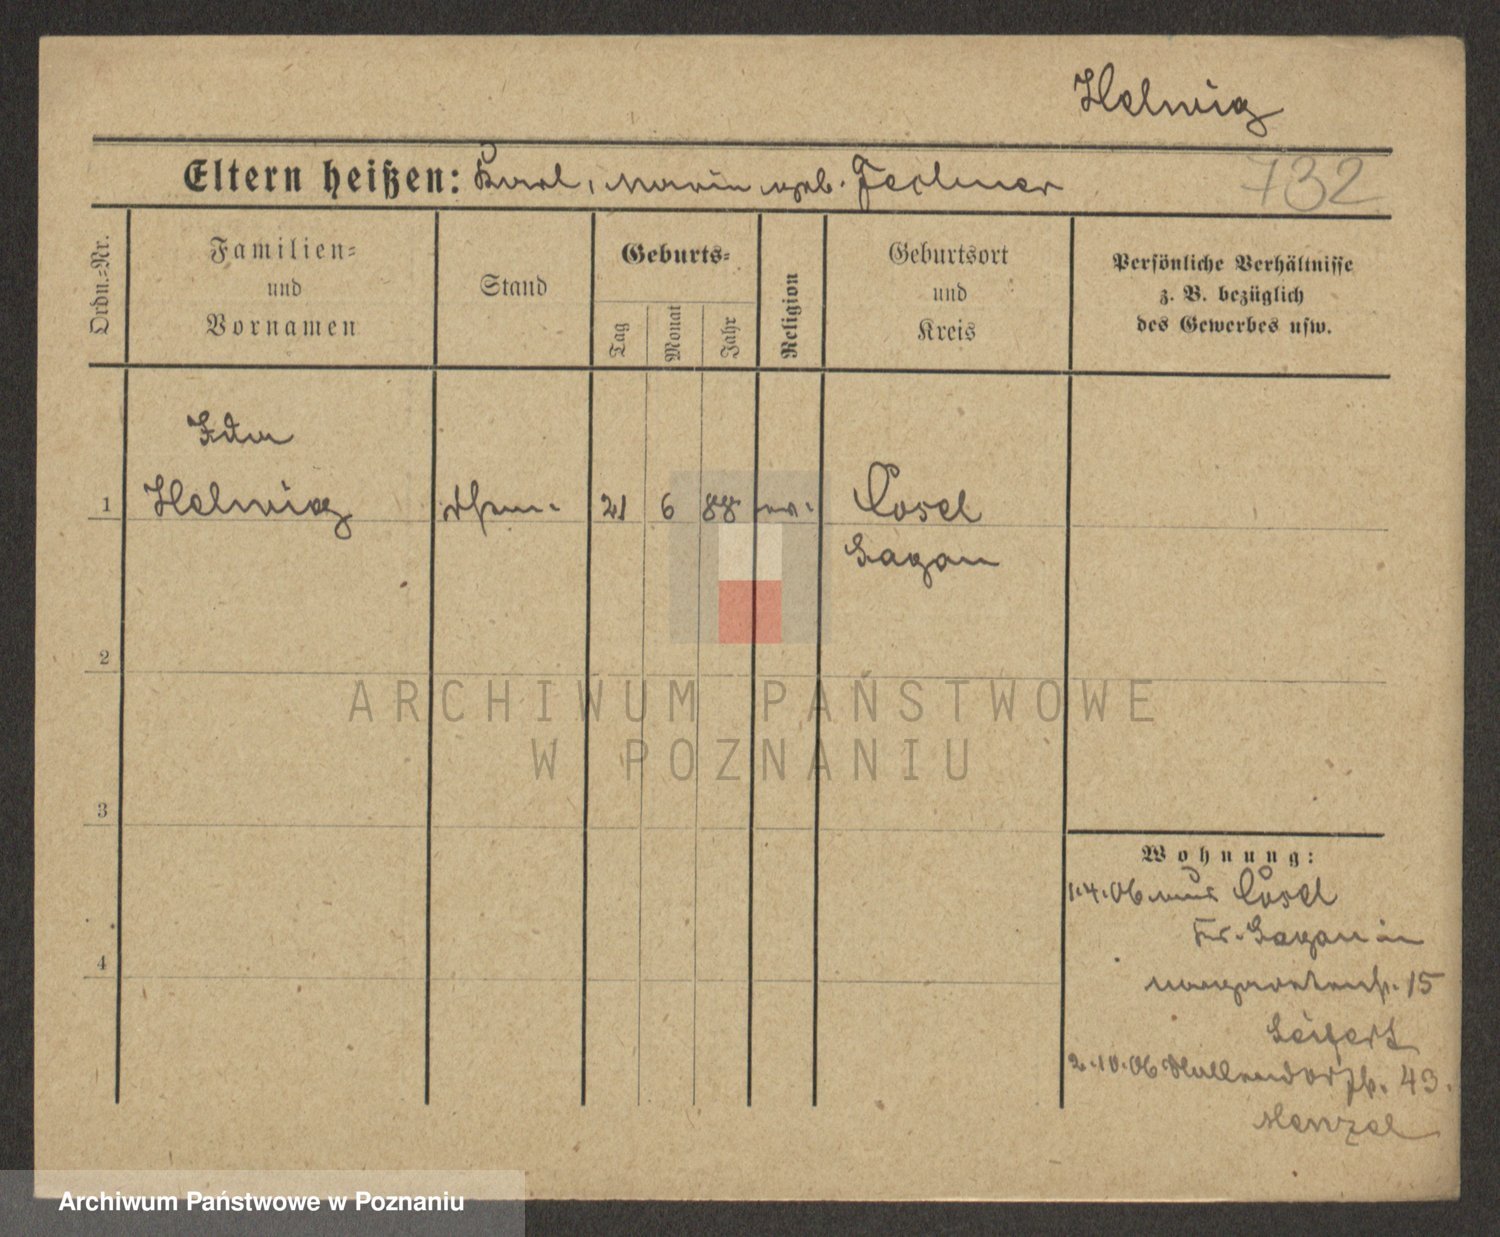 Helwig
Eltern heißen: Karl, Marie geb. Fechner
732
Ordn.=Nr.
Familien=
und
Vornamen
Stand
Geburts=
Tag
Monat
Jahr
Religion
Geburtsort
und
Kreis
Persönliche Verhältnisse
z. B. bezüglich
des Gewerbes usw.
Ida
1 Helwig 21 6 88 ev. Cosel
Sagan
2
3
4
Wohnung:
1.4.06 aus Cosel
Kr. Sagan in
Margaretenstr. 15
Seifert
2.10.06 43.
Menzel
ARCHIWUM PAŃSTWOWE
W POZNANIU
Archiwum Państwowe w Poznaniu